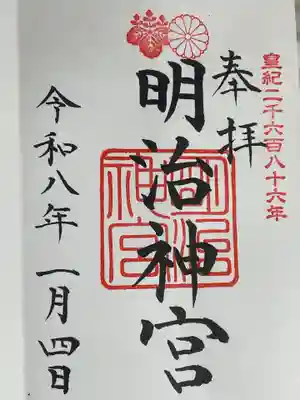 皇紀二千六百八十六年
奉拝
明治神宮
明治神宮
令和八年一月四日